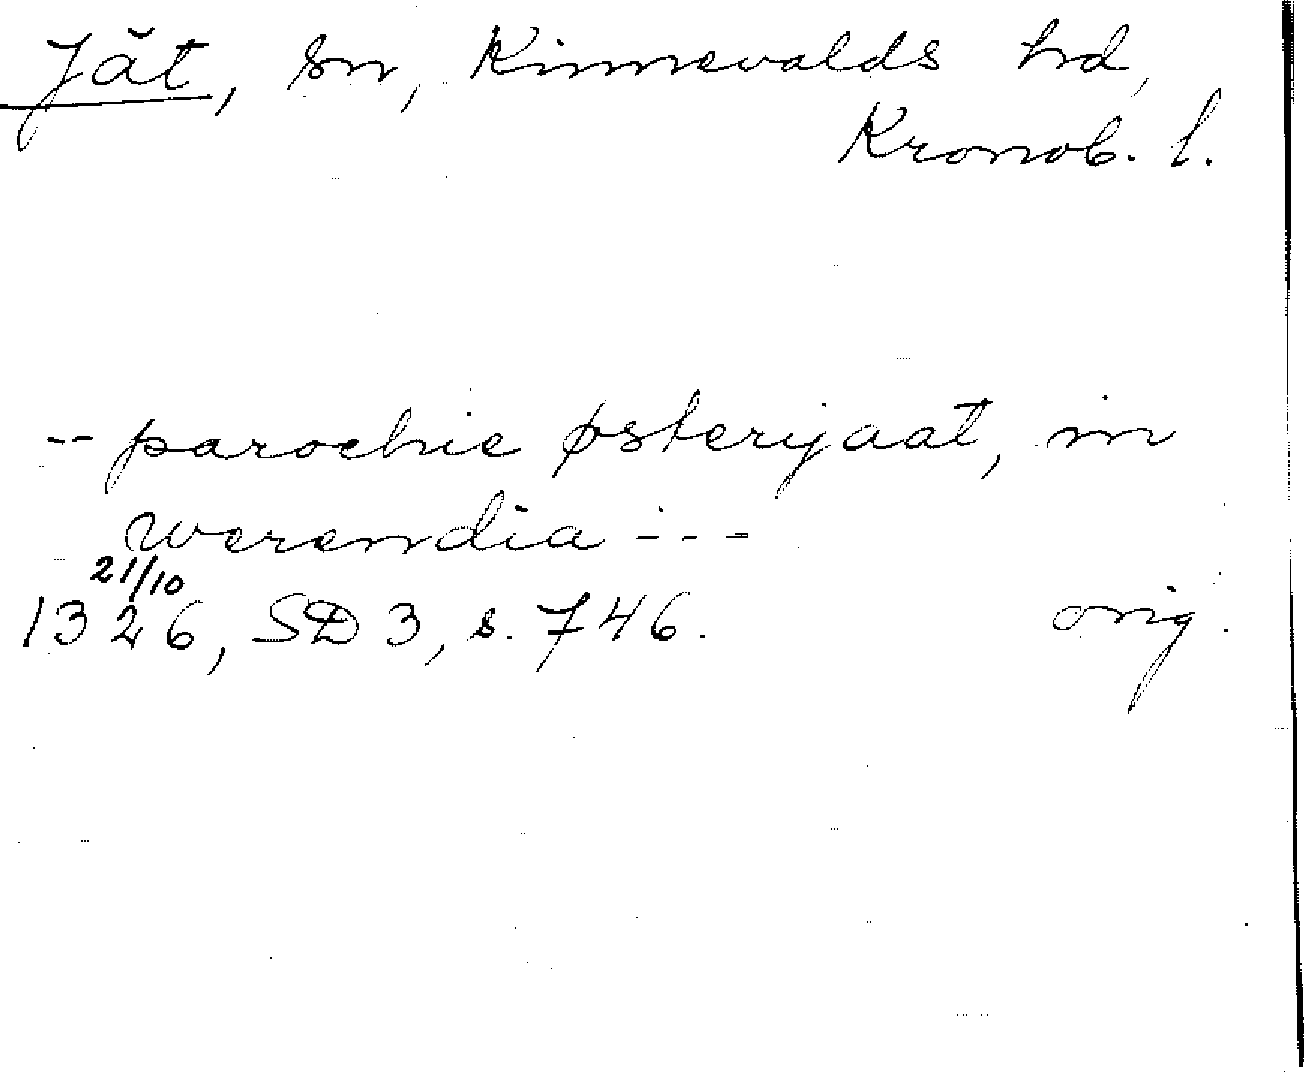 Jät, sn, Kinnevalds hd,
Kronob. l.
-- parochie østerijaat, in
werendia ---
21/10
1326, SD 3, s. 746. orig.